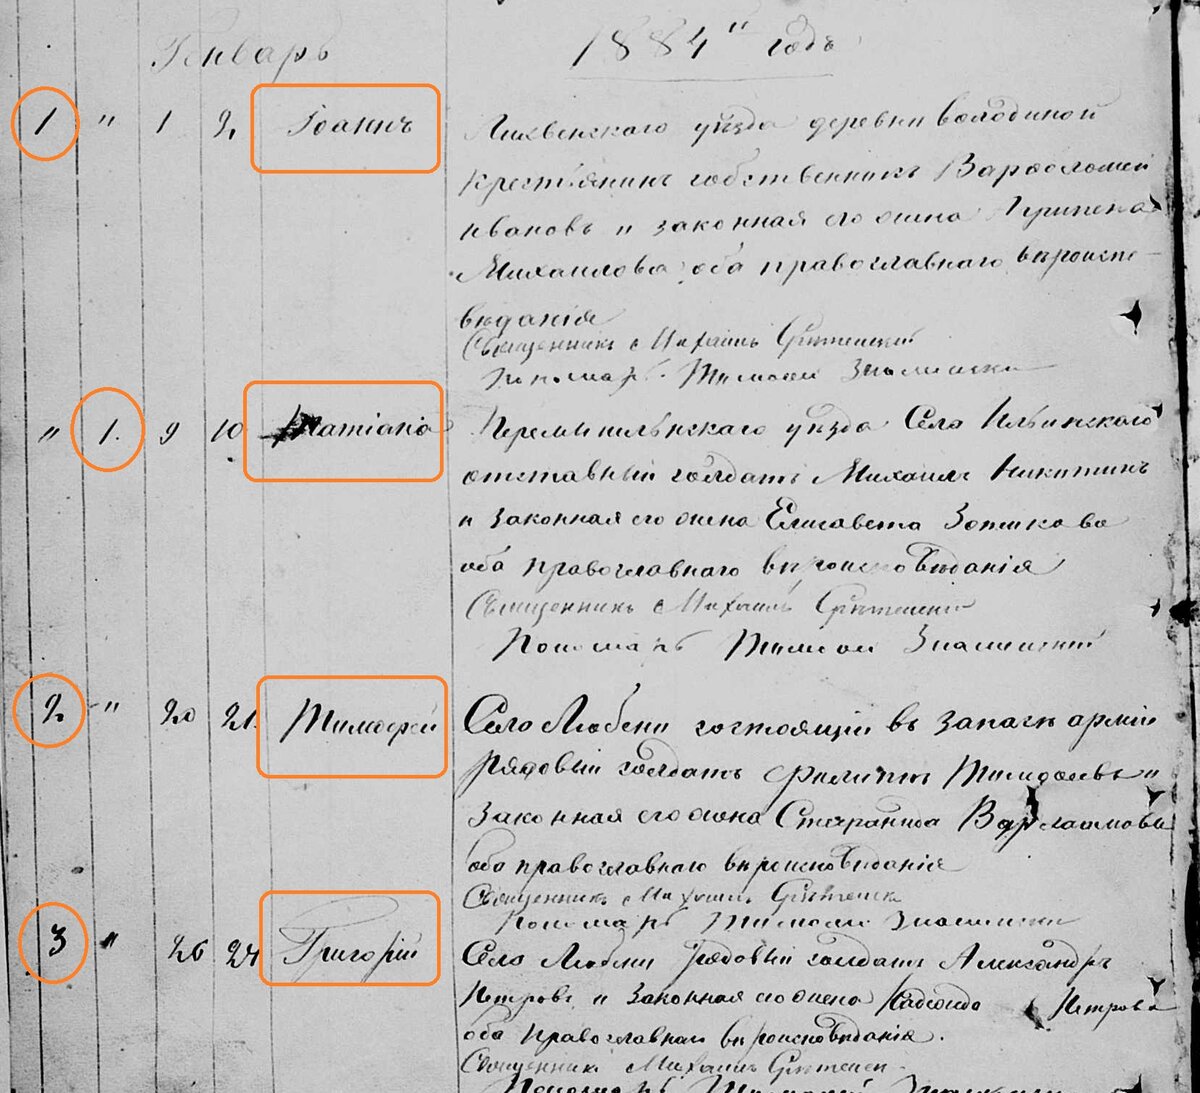 Генварь 1884 годъ
1 " 1 2 Іоаннъ Лихвенскаго уѣзда деревни Володиной
крестьянинъ собственникъ Варфоломей
Ивановъ и законная его жена Агрипена
Михаилова оба православнаго вѣроиспо-
вѣданія
Священникъ Михаилъ
Пономарь Тимофей Знаменски
" 1. 9 10 Татіана Перемышльскаго уѣзда Села Ильинскаго
отставный солдатъ Михаилъ Никитинъ
и законная его жена Елисавета Зотикова
оба православнаго вѣроисповѣданія
Священникъ Михаилъ
Пономарь Тимофей Знаменскій
2 " 20 21. Тимофей Село Любени состоящій въ запасѣ арміи
рядовый солдатъ Филиппъ Тимофеевъ и
законная его жена Стефанида Варлаамова
оба православнаго вѣроисповѣданія
Священникъ Михаилъ
Пономарь Тимофей Знаменски
3 " 26 27 Григорій Село Любени рядовый солдатъ Александръ
Петровъ и законная его жена Петрова
оба православнаго вѣроисповѣданія.
Священникъ Михаилъ
Пономарь Тимофей